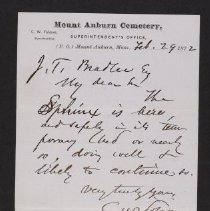 Mount Auburn Cemetery,
SUPERINTENDENT'S OFFICE,
(P. O.) Mount Auburn, Mass. Feb. 29 1872
J. T. Bradlee Esq
My dear Sir
The
Sphinx is here,
and safely in its tem-
porary bed or nearly
so, doing well &
likely to continue so.
Very truly yours